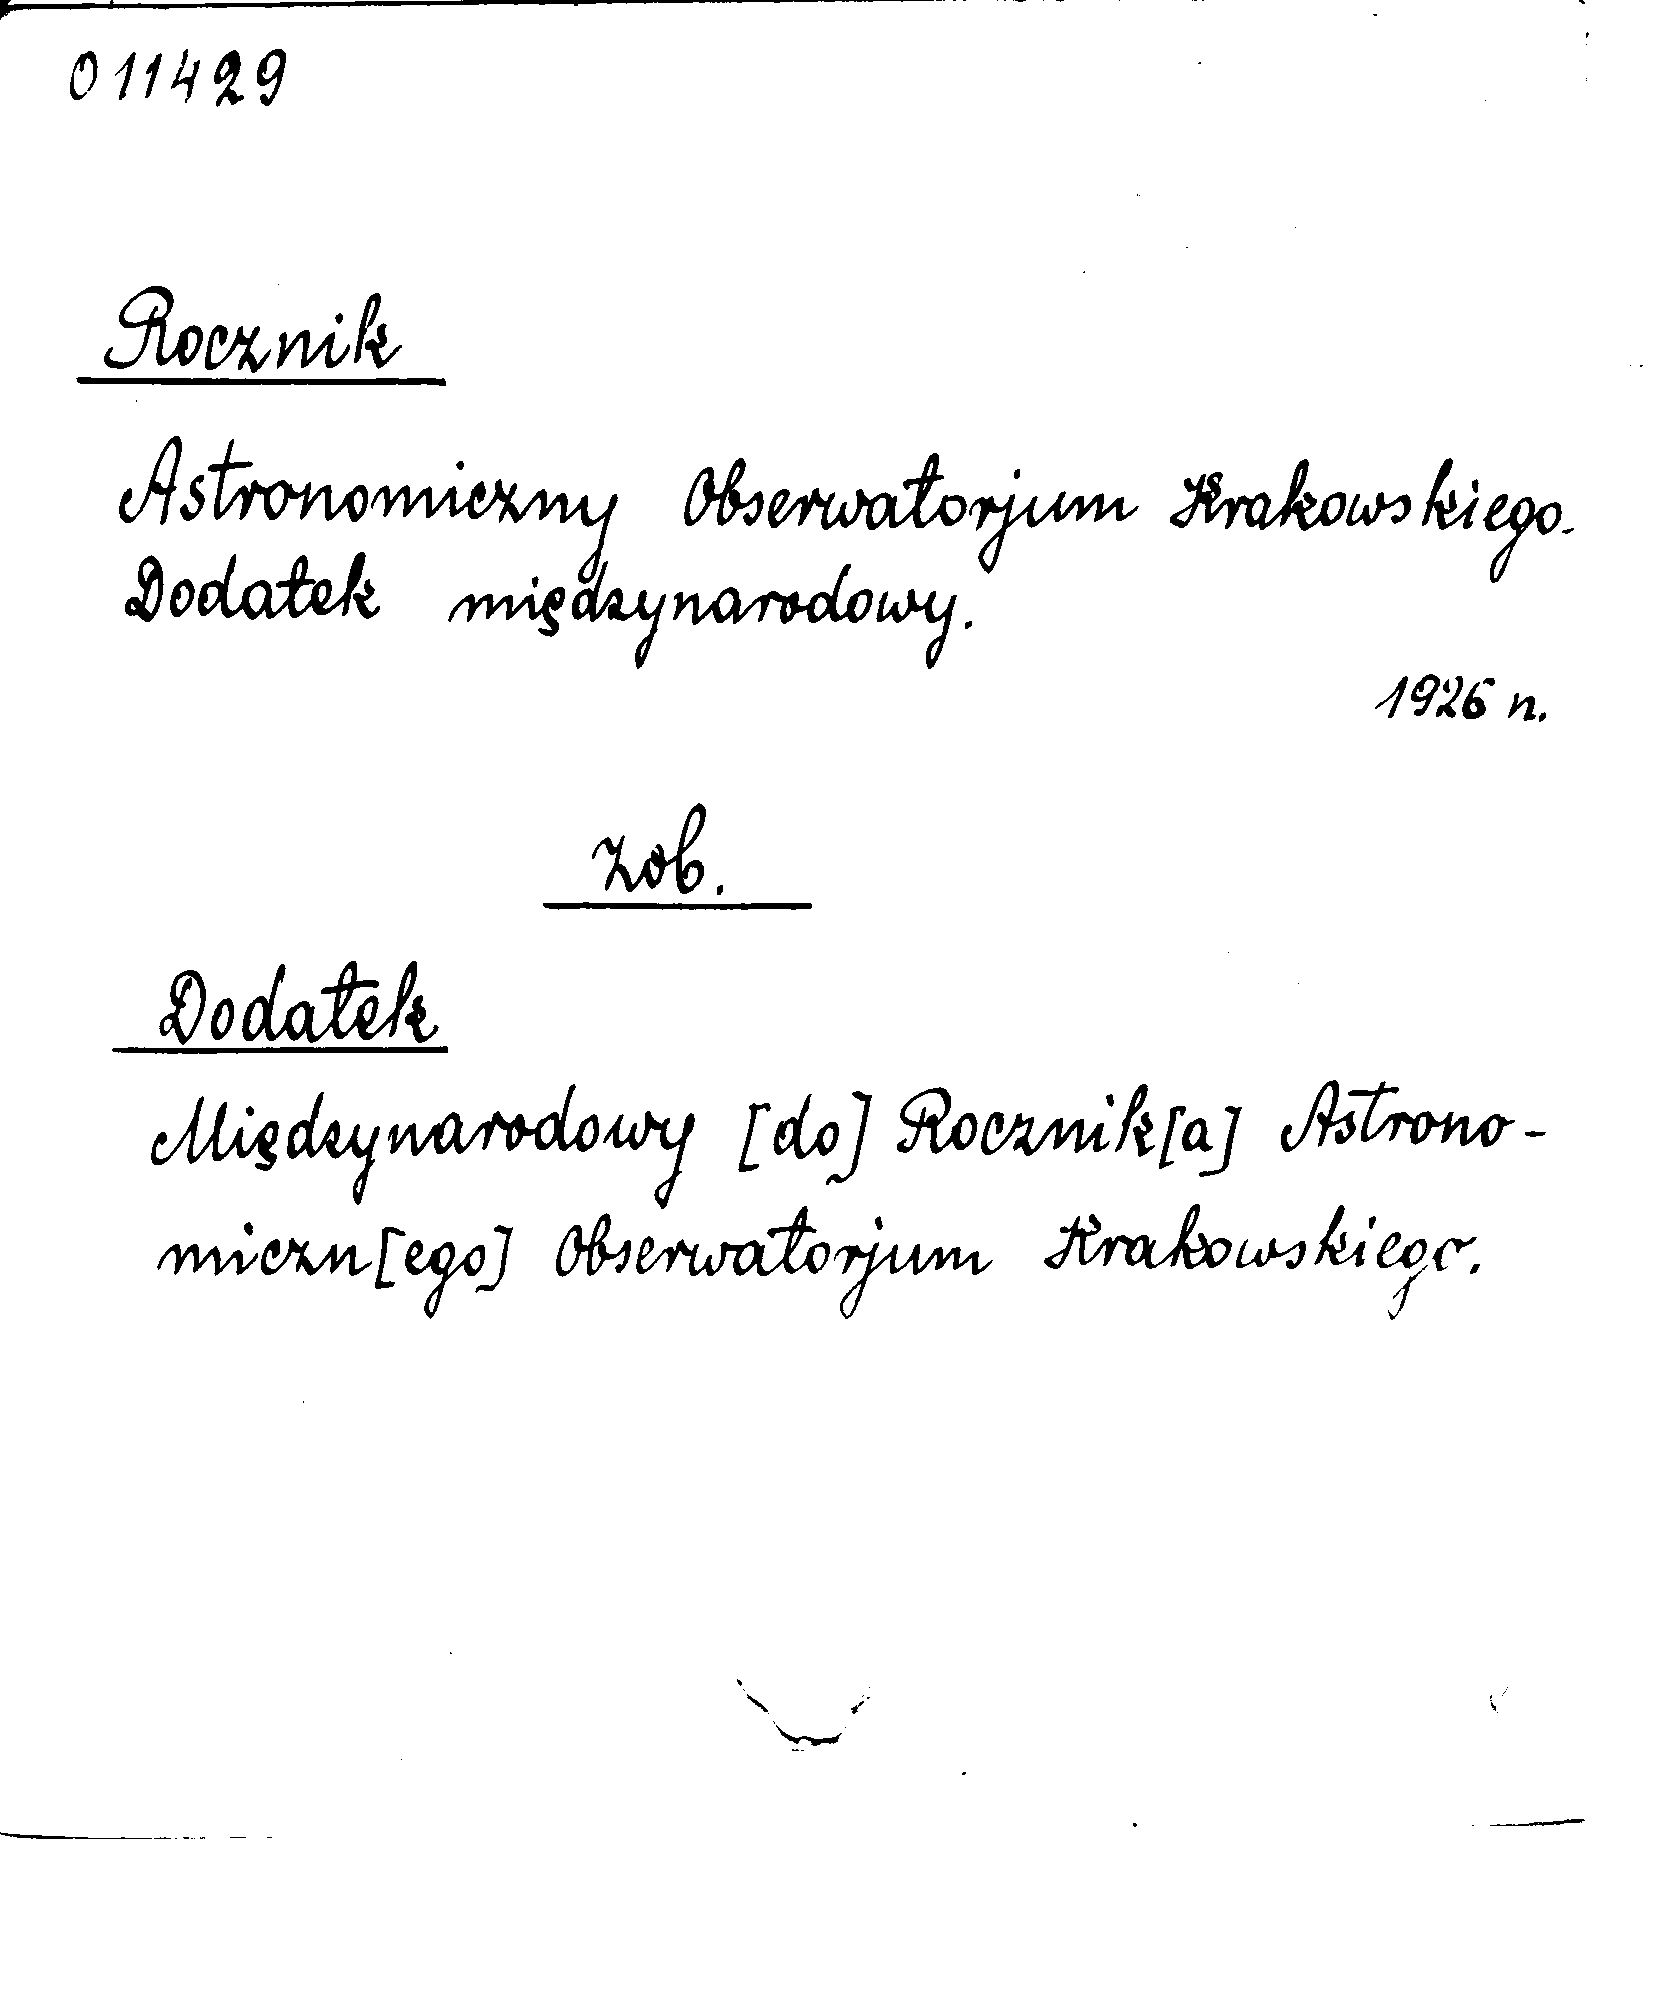 011429
Rocznik
Astronomiczny Obserwatorjum Krakowskiego.
Dodatek międzynarodowy.
1926 n.
Zob.
Dodatek
Międzynarodowy [do] Rocznik[a] Astrono-
miczn[ego] Obserwatorjum Krakowskiego.